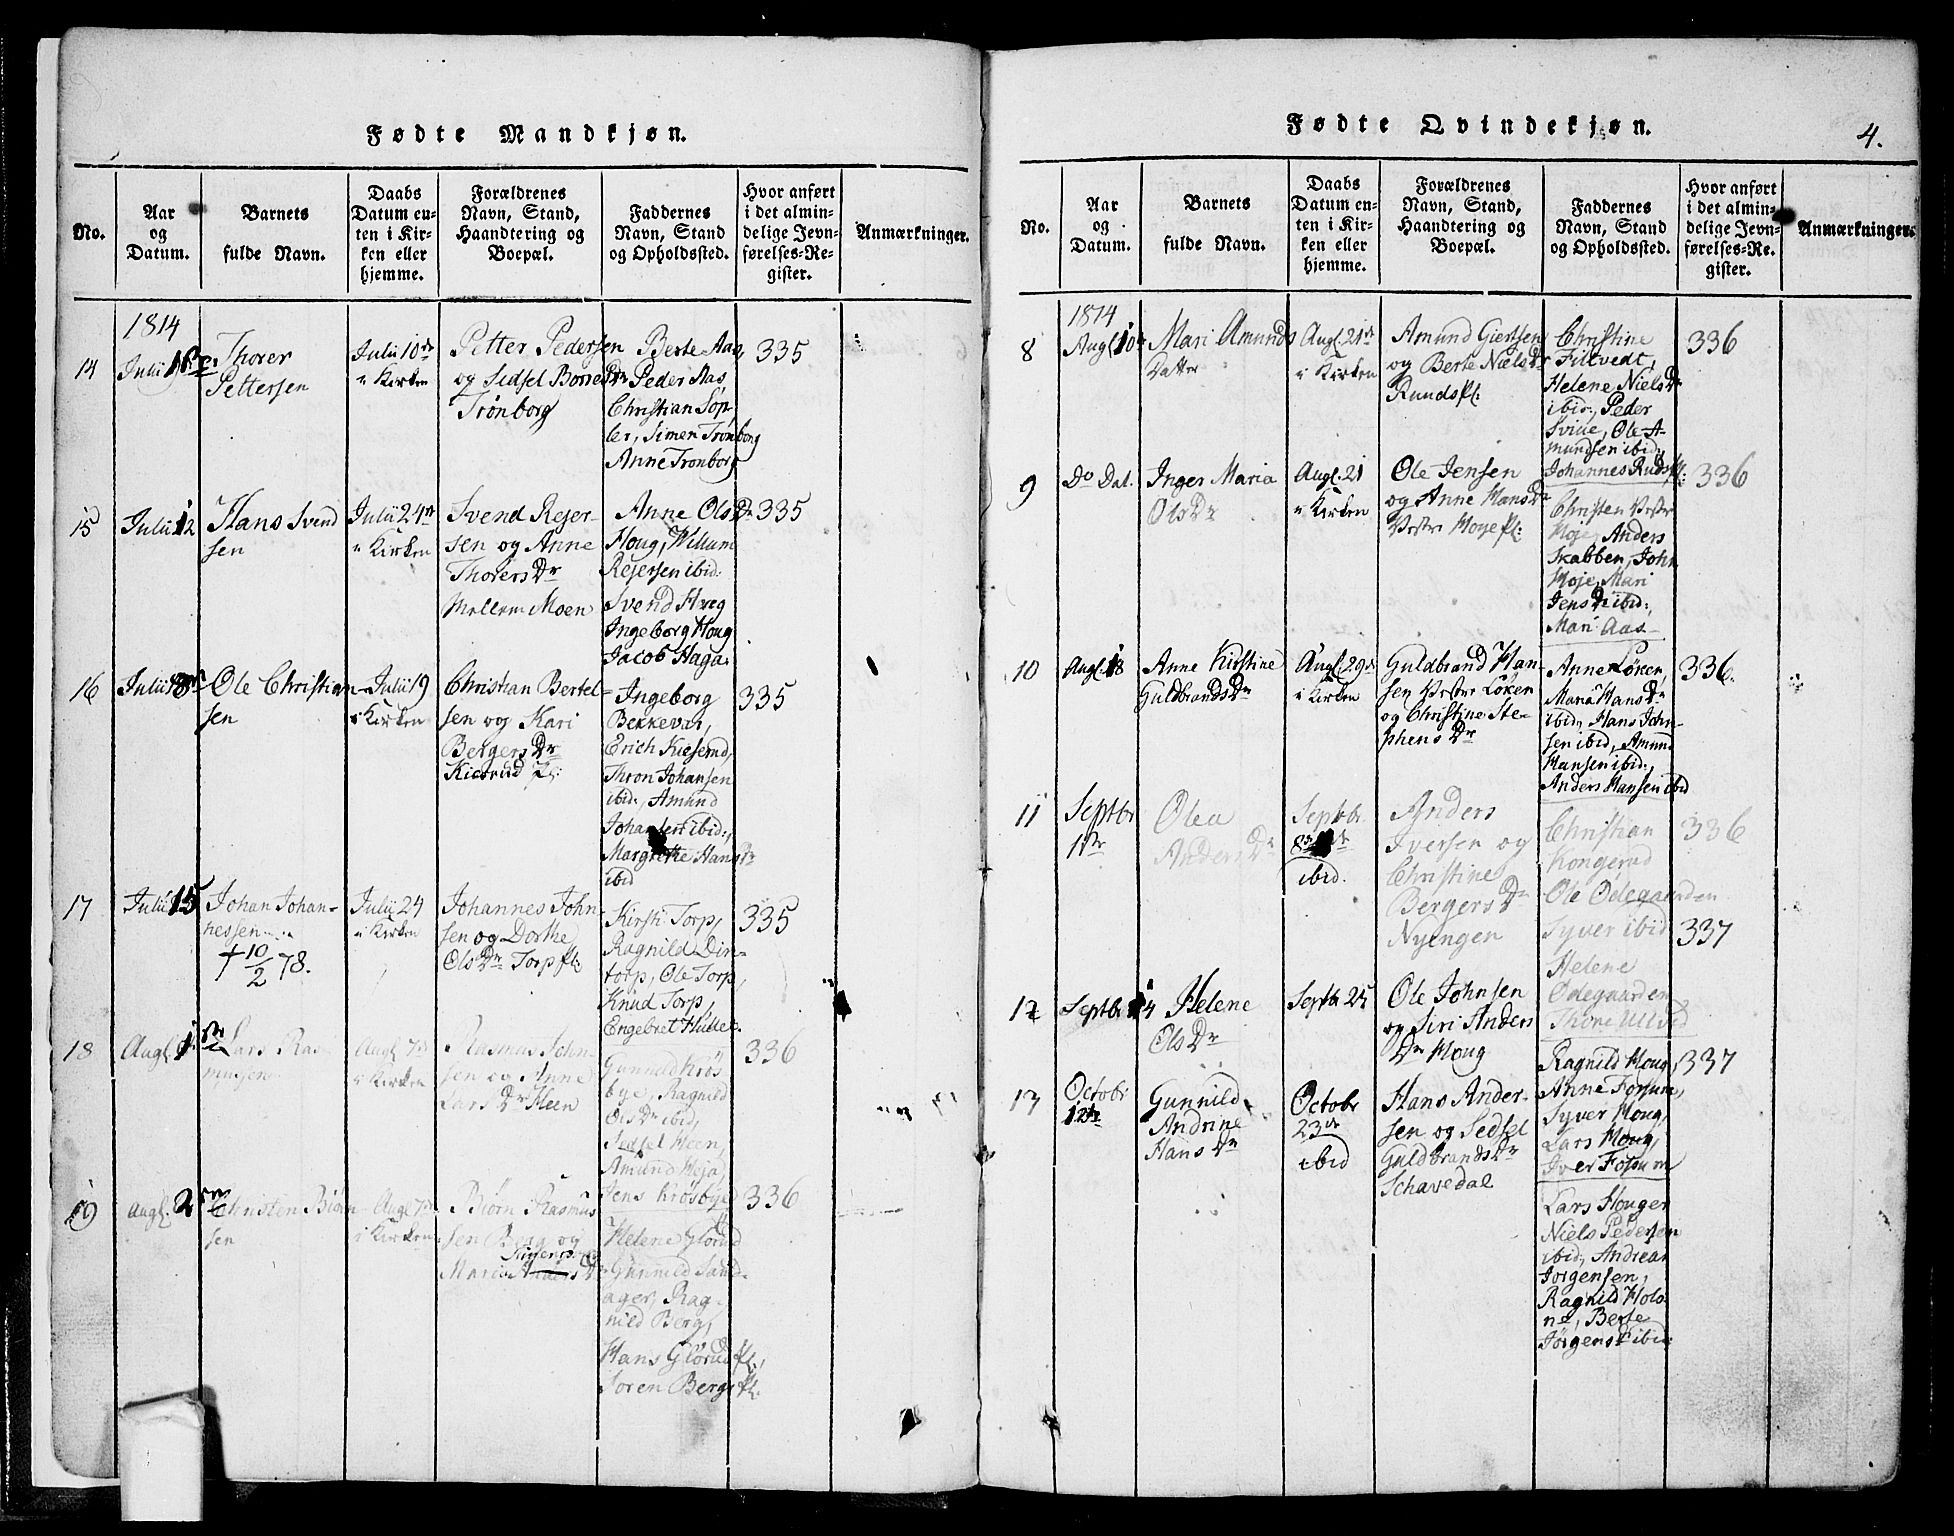 Fødte Mandkjøn.
No.
Aar
og
Datum.
Barnets
fulde Navn.
Daabs
Datum en-
ten i Kir-
ken eller
hjemme.
Forældrenes
Navn, Stand,
Haandtering og
Boepæl.
Faddernes
Navn, Stand
og Opholdssted.
Hvor anført
i det almin-
delige Jevn-
førelses-Re-
gister.
Anmærkninger.
1814
14
Julii
Thorer
Pettersen
Julii 10de
i Kirken
Petter Pedersen
og Sidsel Borres Dr
Trønborg
Berte Aas,
Peder Aas,
Christian Søp
ler, Simen Trønborg
Anne Trønborg
335
15
Julii 12
Hans Svend
sen
Julii 24de
i Kirken
Svend Rejer-
sen og Anne
Thorers Dr
Mellem Moen
Anne Ols Dr
Houg, Willum
Rejersen ibid:
Svend Hæg
Ingeborg Houg
Jacob Haga.
335
16
Julii 18de
Ole Christian-
sen
Julii 19
i Kirken
Christian Bertel-
sen og Kari
Bergers Dr
Kiesrud pl:
Ingeborg
Bekkevar,
Erich Kieserud,
Thron Johansen
ibid:, Amund
Johansen ibid:,
Margrethe Hans Dr
ibid
335
17
Julii 15
Johan Johan-
nessen
† 10/2 78.
Julii 24
i Kirken
Johannes John-
sen og Dorthe
Ols Dr Torp pl:
Kirsti Torp,
Ragnild Din-
torp, Ole Torp,
Knud Torp,
Engebret Hulle.
335
18
Augl. 1
Lars Ras
musen
Augl 7de
i Kirken
Rasmus John-
sen og Anne
Lars Dr Heen
Gunnild Krøs
bye, Ragnild
Ols Dr ibid,
Sidsel Heen,
Amund Heja,
Jens Krosbye
336
19
Augl. 2
Christen Biørn-
sen
Augl 7de
i Kirken
Biørn Rasmus
sen Berg og
Maria Anders Dr
Helene Glørud
Gunnild Sand
ager, Rag-
nild Berg,
Hans Glørud pl.,
Soren Berg pl.
336
Fødte Qvindekjøn.
4.
No.
Aar
og
Datum.
Barnets
fulde Navn.
Daabs
Datum en-
ten i Kir-
ken eller
hjemme.
Forældrenes
Navn, Stand,
Haandtering og
Boepæl.
Faddernes
Navn, Stand
og Opholdssted.
Hvor anført
i det almin-
delige Jevn-
førelses-Re-
gister.
Anmærkninger.
1814
8
Augl 10de
Mari Amunds
Datter
Augl. 21de
i Kirken
Amund Giertsen
og Berte Niels Dr
Rundspl:
Christine
Filtvedt,
Helene Niels Dr
ibid:, Peder
Sviue, Ole A-
mundsen ibid:,
Johannes Ruds pl:
336
9
Do Dat.
Inger Maria
Ols Dr
Augl. 21
i Kirken
Ole Jensen
og Anne Hans Dr
Vestre Hoye pl:
Christen Vestre
Hoje, Anders
Skabben, John
Hoje, Mari
Jens Dr ibid:,
Mari Aas
336
10
Augl. 18
Anne Kirstine
Guldbrands Dr
Augl 29de
i Kirken
Guldbrand Han-
sen Vestre Løken
og Christine Ste-
phens Dr
Anne Løken,
Maria Hans Dr
ibid, Hans John-
sen ibid, Amund
Hansen ibid:,
Anders Hansen ibid
336.
11
Septbr
1ste
Olea
Anders Dr
Septbr.
ibid.
Anders
Iversen og
Christine
Bergers Dr
Nyengen
Christian
Kongerud
Ole Ødegaarden
Syver ibid
Helene
Ødegaarden
Thone Ulsrud
336
12
Septbr 14
Helene
Ols Dr
Septbr 25
Ole Johnsen
og Siri Anders
Dr Houg
Ragnild Houg,
Anne Fossum,
Syver Houg,
Lars Houg,
Iver Fossum
337
13
Octobr
12te
Gunnild
Andrine
Hans Dr
Octobr
23de
ibid
Hans Ander-
sen og Sidsel
Guldbrands Dr
Schavedal
Lars Houger
Niels Pedersen
ibid, Andreas
Jørgensen,
Ragnild Holo-
, Berte
Jørgens ibid:
337